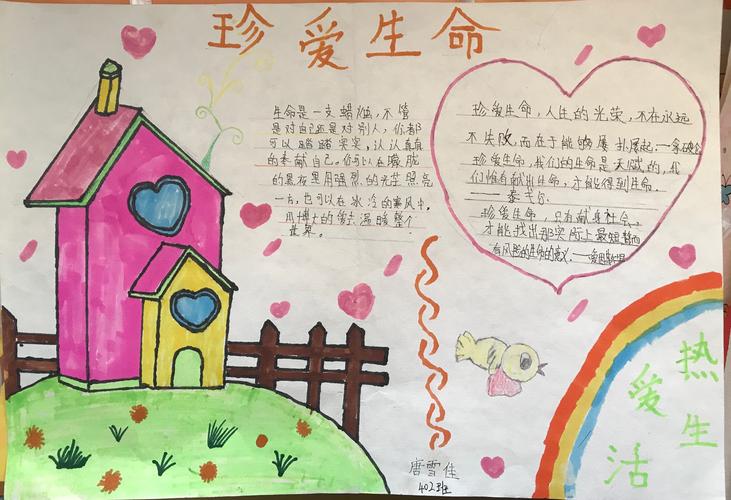 珍爱生命
生命是一支蜡烛,不管
是对自己还是对别人,你都
可以踏踏实实,认认真真
的奉献自己。你可以在朦胧
的黑夜里用强烈的光芒照亮
一方,也可以在冰冷的寒风中,
用博大的爱去温暖整个
世界。
珍爱生命,人生的光荣,不在永远
不失败,而在于能够屡扑屡起。—拿破仑
珍爱生命,我们的生命是天赋的,我
们惟有献出生命,才能得到生命。
泰戈尔
珍爱生命,只有献身社会,
才能找出那实际上最短暂而
有风险的生命的意义。——爱因斯坦
热爱
生活
唐雪佳
402班